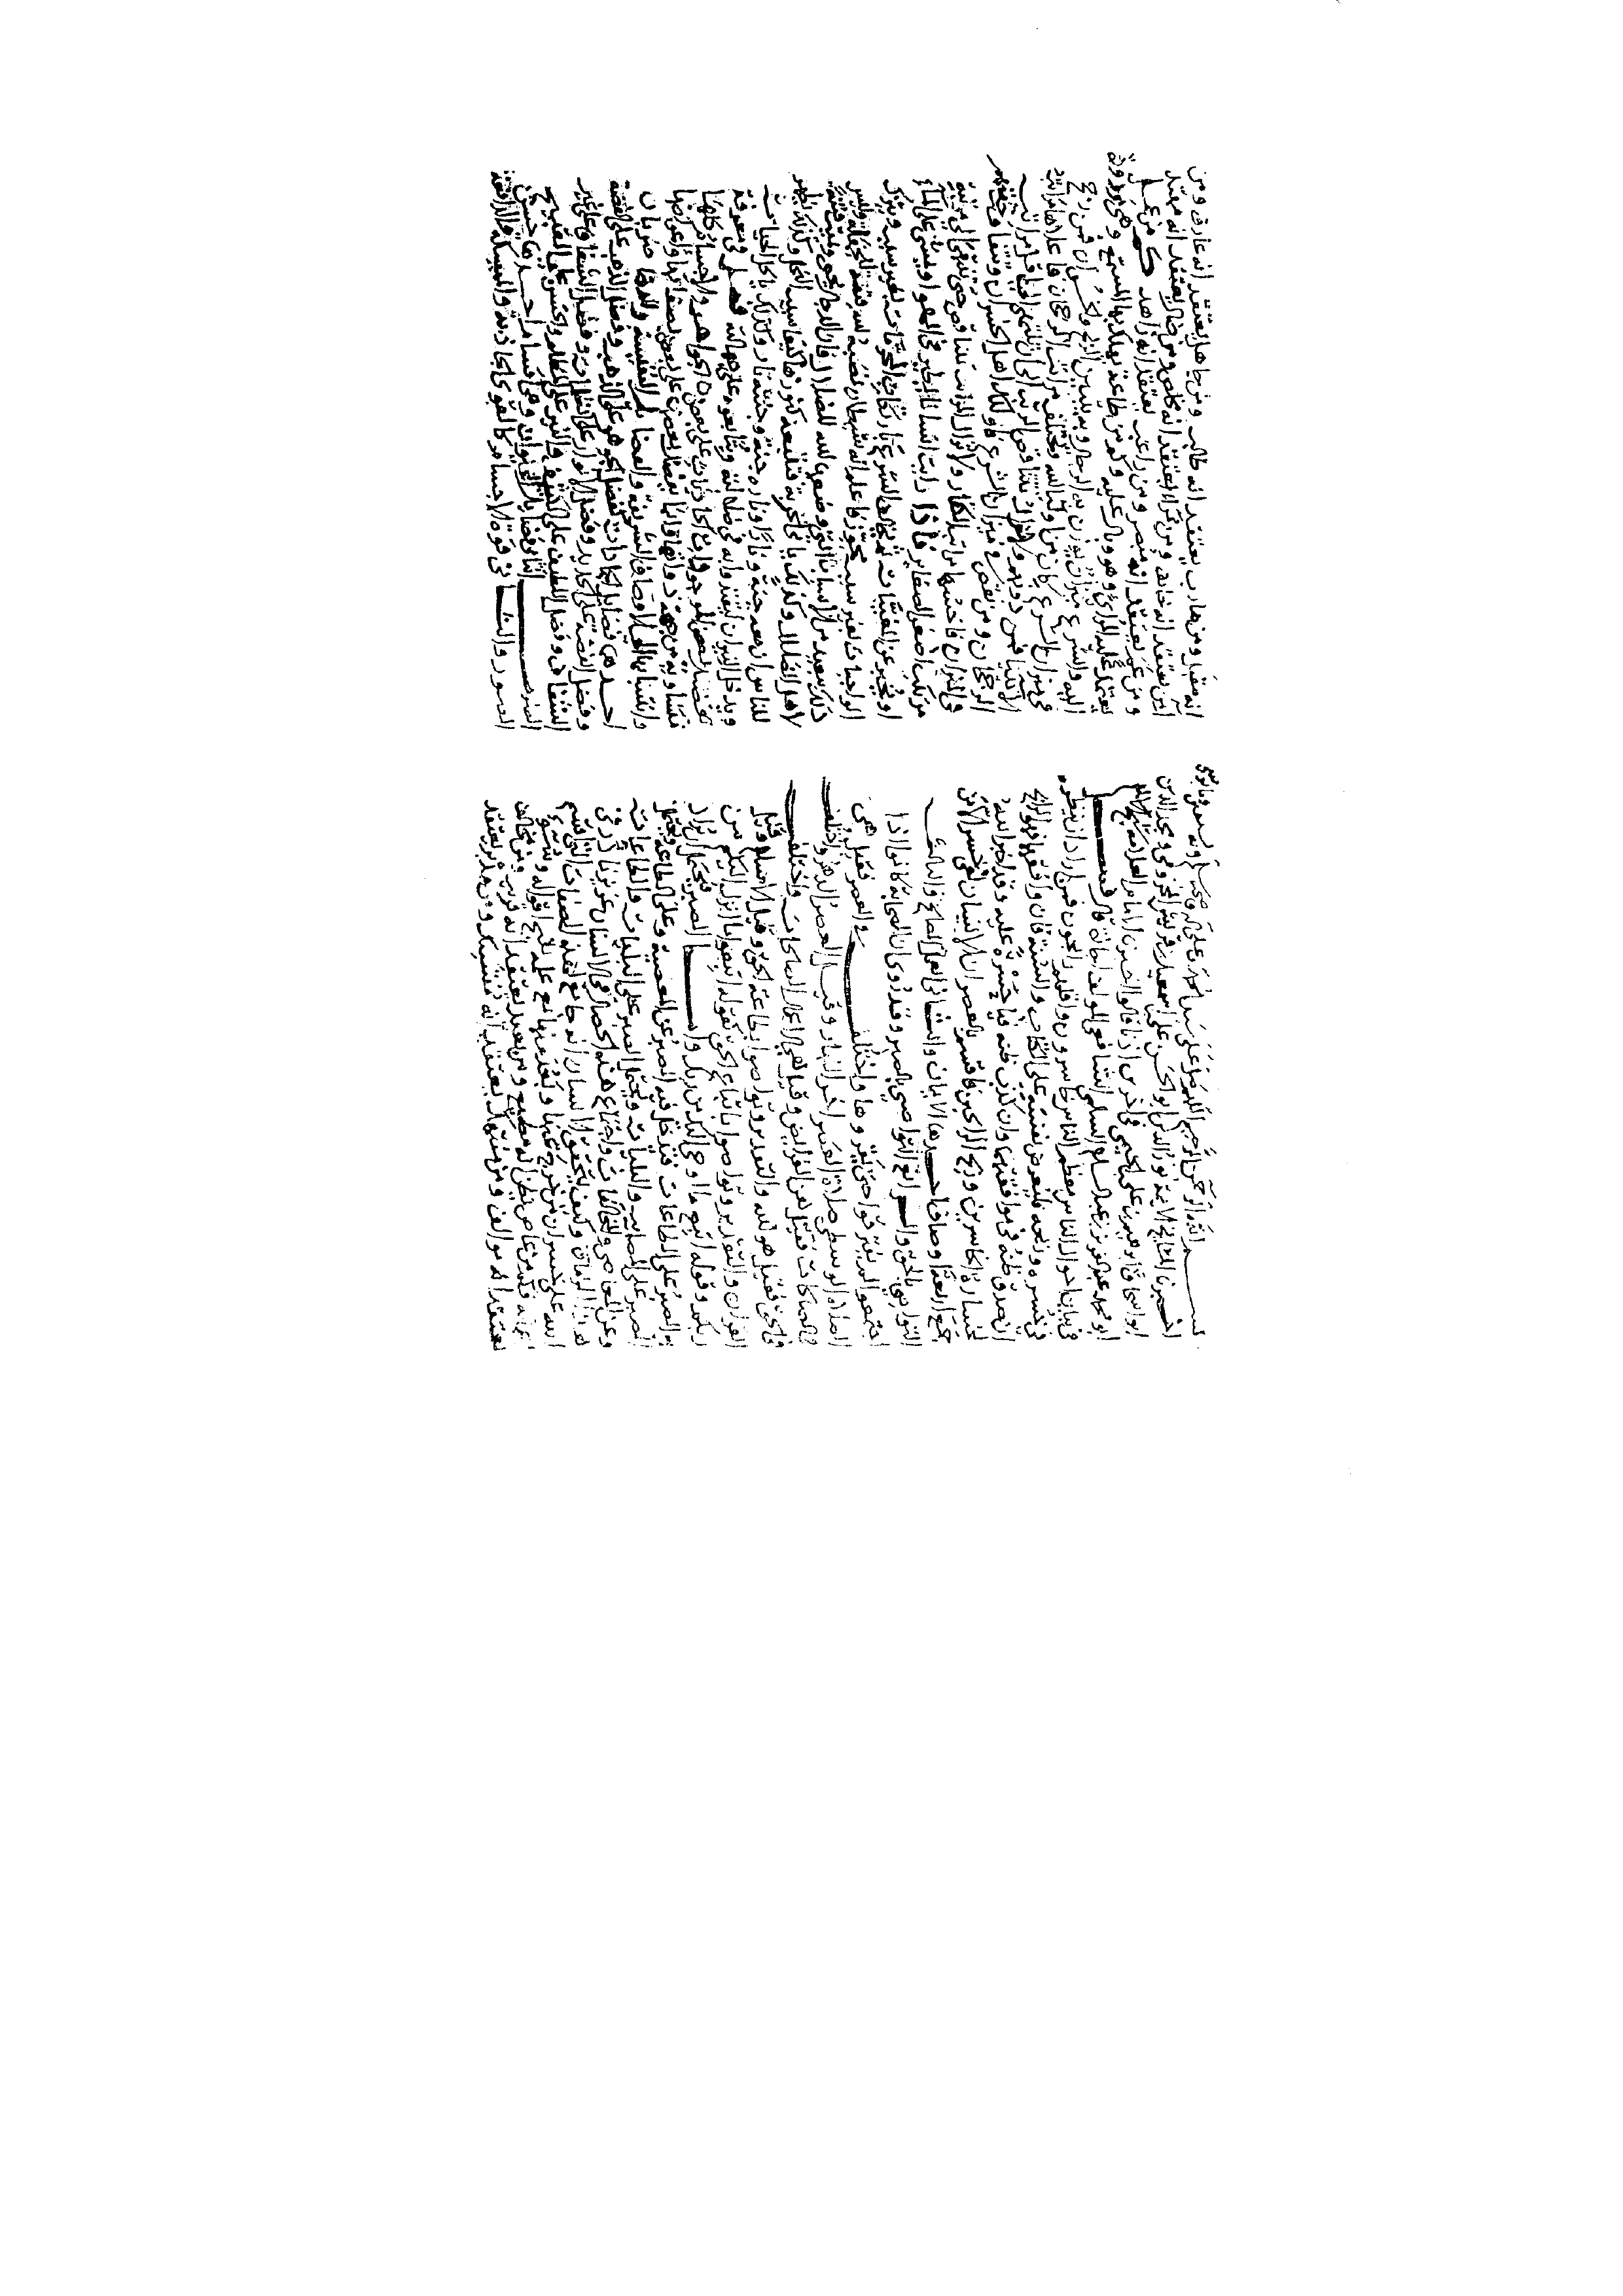 بسم الله الرحمن الرحيم اللهم صل على سيدنا محمد وعلى اله وصحبه وسلم
اخبرنا المشايخ الائمة نور الدين ابو الحسن علي بن اسمعيل بن قريش المخزومي ومجد الدين
ابو اسحاق ابراهيم بن علي في اخرين اذنا قالوا اخبرنا امام العلامة شيخ
ابو محمد عبد العزيز بن عبد السلام السلمي الشافعي المولف اجازة قال فصل
في بيان احوال الناس معظم الناس خاسرون واقلهم رابحون فمن اراد ان ينظر
في خسره وربحه فليعرض نفسه على الكتاب والسنة فان وافقهما فهو الرابح
ان صدق ظنه في موافقتهما وان كذب ظنه فيا حسرة عليه وقد اخبر الله
بخسارة الخاسرين وربح الرابحين فاقسم بالعصر ان الانسان لفي خسر الا من
جمع اربعة اوصاف احدها الايمان والثاني العمل الصالح والثالث
التواصي بالحق والرابع التواصي بالصبر وقد روي ان الصحابة كانوا اذا
اجتمعوا لم يتفرقوا حتى يقروها واختلف في العصر فقيل هي
الصلاة الوسطى صلاة العصر اخر النهار وقيل العصر الدهر واختلف
في الصالحات فقيل هن الفرايض وقيل هي اعمال الصالحات واختلف
في الحق فقيل هو الله والتقدير وتواصوا بطاعة الحق وقيل الاسلام وقيل
القران والتقدير وتواصوا باتباع الحق كقوله اتبعوا ما انزل اليكم من
ربكم وقوله اتبع ما اوحي اليك من ربك واما الصبر فيحتمل ان يراد
به الصبر على الطاعات فتدخل فيه الصبر عن المعصية وعلى الطاعة ويحتمل
الصبر على المصايب والبليات ويحتمل الصبر على البليات والطاعات
وعن المعاصي والمخالفات واجتماع هذه الخصال في الانسان عزيز نادر في
هذا الزمان وكيف يتحقق الانسان انه جامع لهذه الصفات التي اقسم
الله على خسران من خرج عنها وبعد منها مع علمه بقبح اقواله وسوء
اعماله فكم من عاص يظن انه مطيع ومن بعيد يعتقد انه قريب ومن مخالف
يعتقد انه موافق ومن منتهك يعتقد انه متنسك ومن مدبر يعتقد
انه مقبل ومن هارب يعتقد انه طالب ومن جاهل يعتقد انه عارف ومن
آمن يعتقد انه خايف ومن مراء يعتقد انه مخلص ومن ضال يعتقد انه مهتد
ومن عم يعتقد انه مبصر ومن راغب يعتقد انه زاهد وكم من عمل
يعتمد عليه المرائي وهو وبال عليه وكم من طاعة يهلك بها المتسمع وهي مردودة
اليه والشرع ميزان يوزن به الرجال وبه يتبين الربح والخسران فمن رجح
في ميزان الشرع كان من اولياء الله وتختلف مراتب الرجحان فاعلاها مراتب
الانبيا فمن دونهم ولا تزال تتناقص الرتب الى ان تنتهي الى اقل مراتب
الرجحان ومن نقص في ميزان الشرع فاوليك اهل الخسران وتتفاوت خفتهم
في الميزان فاخسها مراتب الكفار ولا تزال المراتب تتناقص حتى تنتهي الى مرتبة
مرتكب اصغر الصغاير فاذا رايت انسانا يطير في الهوا ويمشي على الماء
او يخبر عن المغيبات ثم يخالف الشرع بارتكاب المحرمات بغير سبب ويترك
الواجبات بغير سبب مجوز فاعلم انه شيطان نصبه الله فتنة للجهلة وليس
ذلك ببعيد من الاسباب التي وضعها الله للضلال فان الدجال يحيي ويميت فتنة
لاهل الضلال وكذلك ياتي الخربة فتتبعه كنوزها كيعاسيب النحل وكذلك يظهر
للناس ان معه جنة ونارا وناره جنة وجنته نار وكذلك ياكل الحيات
ويدخل النيران ليقتدوا به في ضلالته ويتابعوه على جهالته فصل في معرفة
تفضيل بعض الموجودات الحادثات على بعض الجواهر والاجسام كلها
متساوية من جهة ذواتها وانما يفضل بعضها على بعض بصفاتها واعراضها
وانتسابها الى الاوصاف الشريفة والفضايل النفيسة والفضل ضربان
احدهما فضايل الجمادات كفضل الجوهر على الذهب وفضل الذهب على الفضة
وفضل الفضة على الحديد وفضل الانوار على الظلمات وفضل الشفاف على غير
الشفاف وفضل اللطيف على الكثيف والنير على المظلم والحسن على القبيح
الضرب الثاني فضايل الحيوان وهي اقسام احدها حسن
الصور والثاني قوة الاجسام كالقوى الجاذبة والممسكة والدافعة